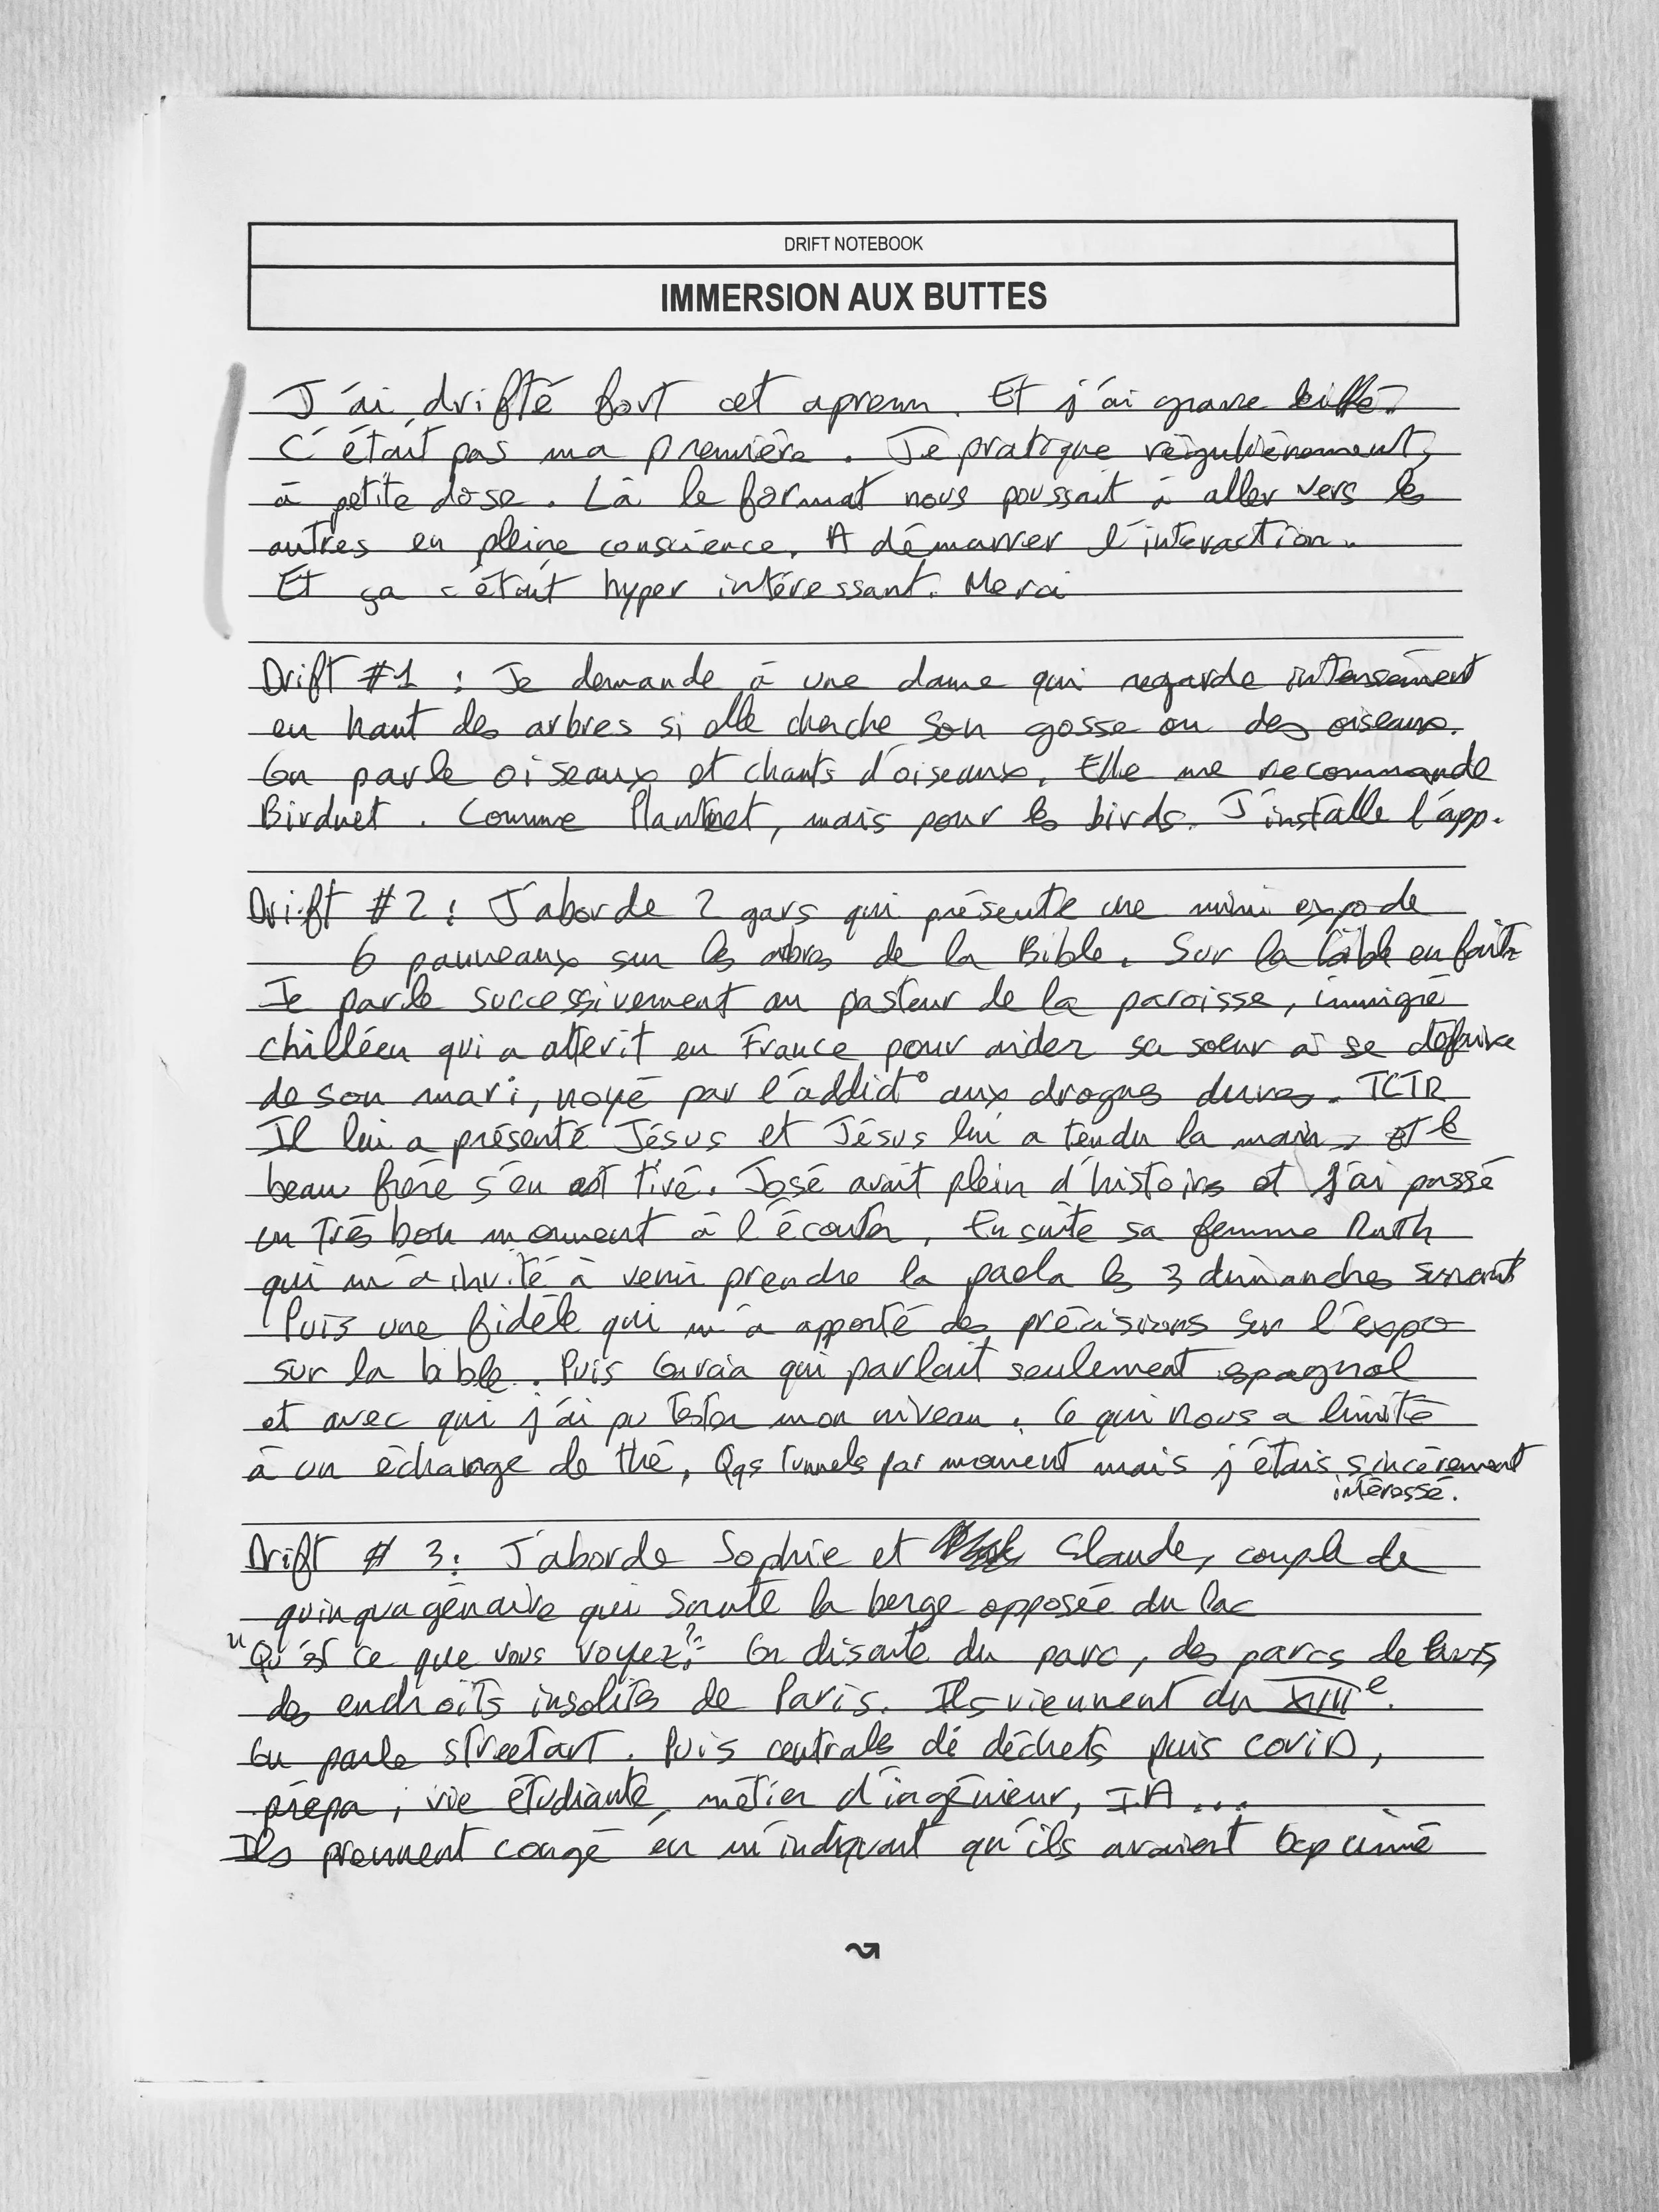 DRIFT NOTEBOOK
IMMERSION AUX BUTTES
J'ai drifté fort cet aprem. Et j'ai grave kiffé.
C'était pas ma première. Je pratique régulièrement,
à petite dose. Là le format nous poussait à aller vers les
autres en pleine conscience. A démarrer l'interaction.
Et ça c'était hyper intéressant. Merci
Drift #1 : Je demande à une dame qui regarde intensément
en haut des arbres si elle cherche son gosse ou des oiseaux.
On parle oiseaux et chants d'oiseaux. Elle me recommande
Birdnet. Comme Plantnet, mais pour les birds. J'installe l'app.
Drift #2 : J'aborde 2 gars qui présente une mini expo de
6 panneaux sur les arbres de la Bible. Sur la bible en fait.
Je parle successivement au pasteur de la paroisse, immigré
chilléen qui a atterit en France pour aider sa soeur à se défaire
de son mari, noyé par l'addict° aux drogues dures. TCTR
Il lui a présenté Jésus et Jésus lui a tendu la main, et le
beau frère s'en est tiré. José avait plein d'histoires et j'ai passé
un très bon moment à l'écouter. Ensuite sa femme Ruth
qui m'a invité à venir prendre la paela les 3 dimanches suivants
Puis une fidèle qui m'a apporté des précisions sur l'expo
sur la bible. Puis Garcia qui parlait seulement espagnol
et avec qui j'ai pu tester mon niveau. Ce qui nous a limité
à un échange de thé. Qqs tunnels par moment mais j'étais sincèrement
intéressé.
Drift #3 : J'aborde Sophie et Claude, couple de
quinquagénaire qui scrute la berge opposée du lac
"Qu'est ce que vous voyez?" On discute du parc, des parcs de Paris,
des endroits insolites de Paris. Ils viennent du XIIIe.
On parle streetart. Puis centrales de déchets puis covid,
prépa, vie étudiante, métier d'ingénieur, IA...
Ils prennent congé en m'indiquant qu'ils avaient bcp aimé